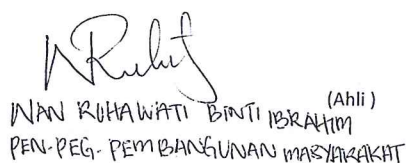 WAN ROHAWATI BINTI IBRAHIM
(Ahli)
PEN-PEG-PEMBANGUNAN MASYARAKAT